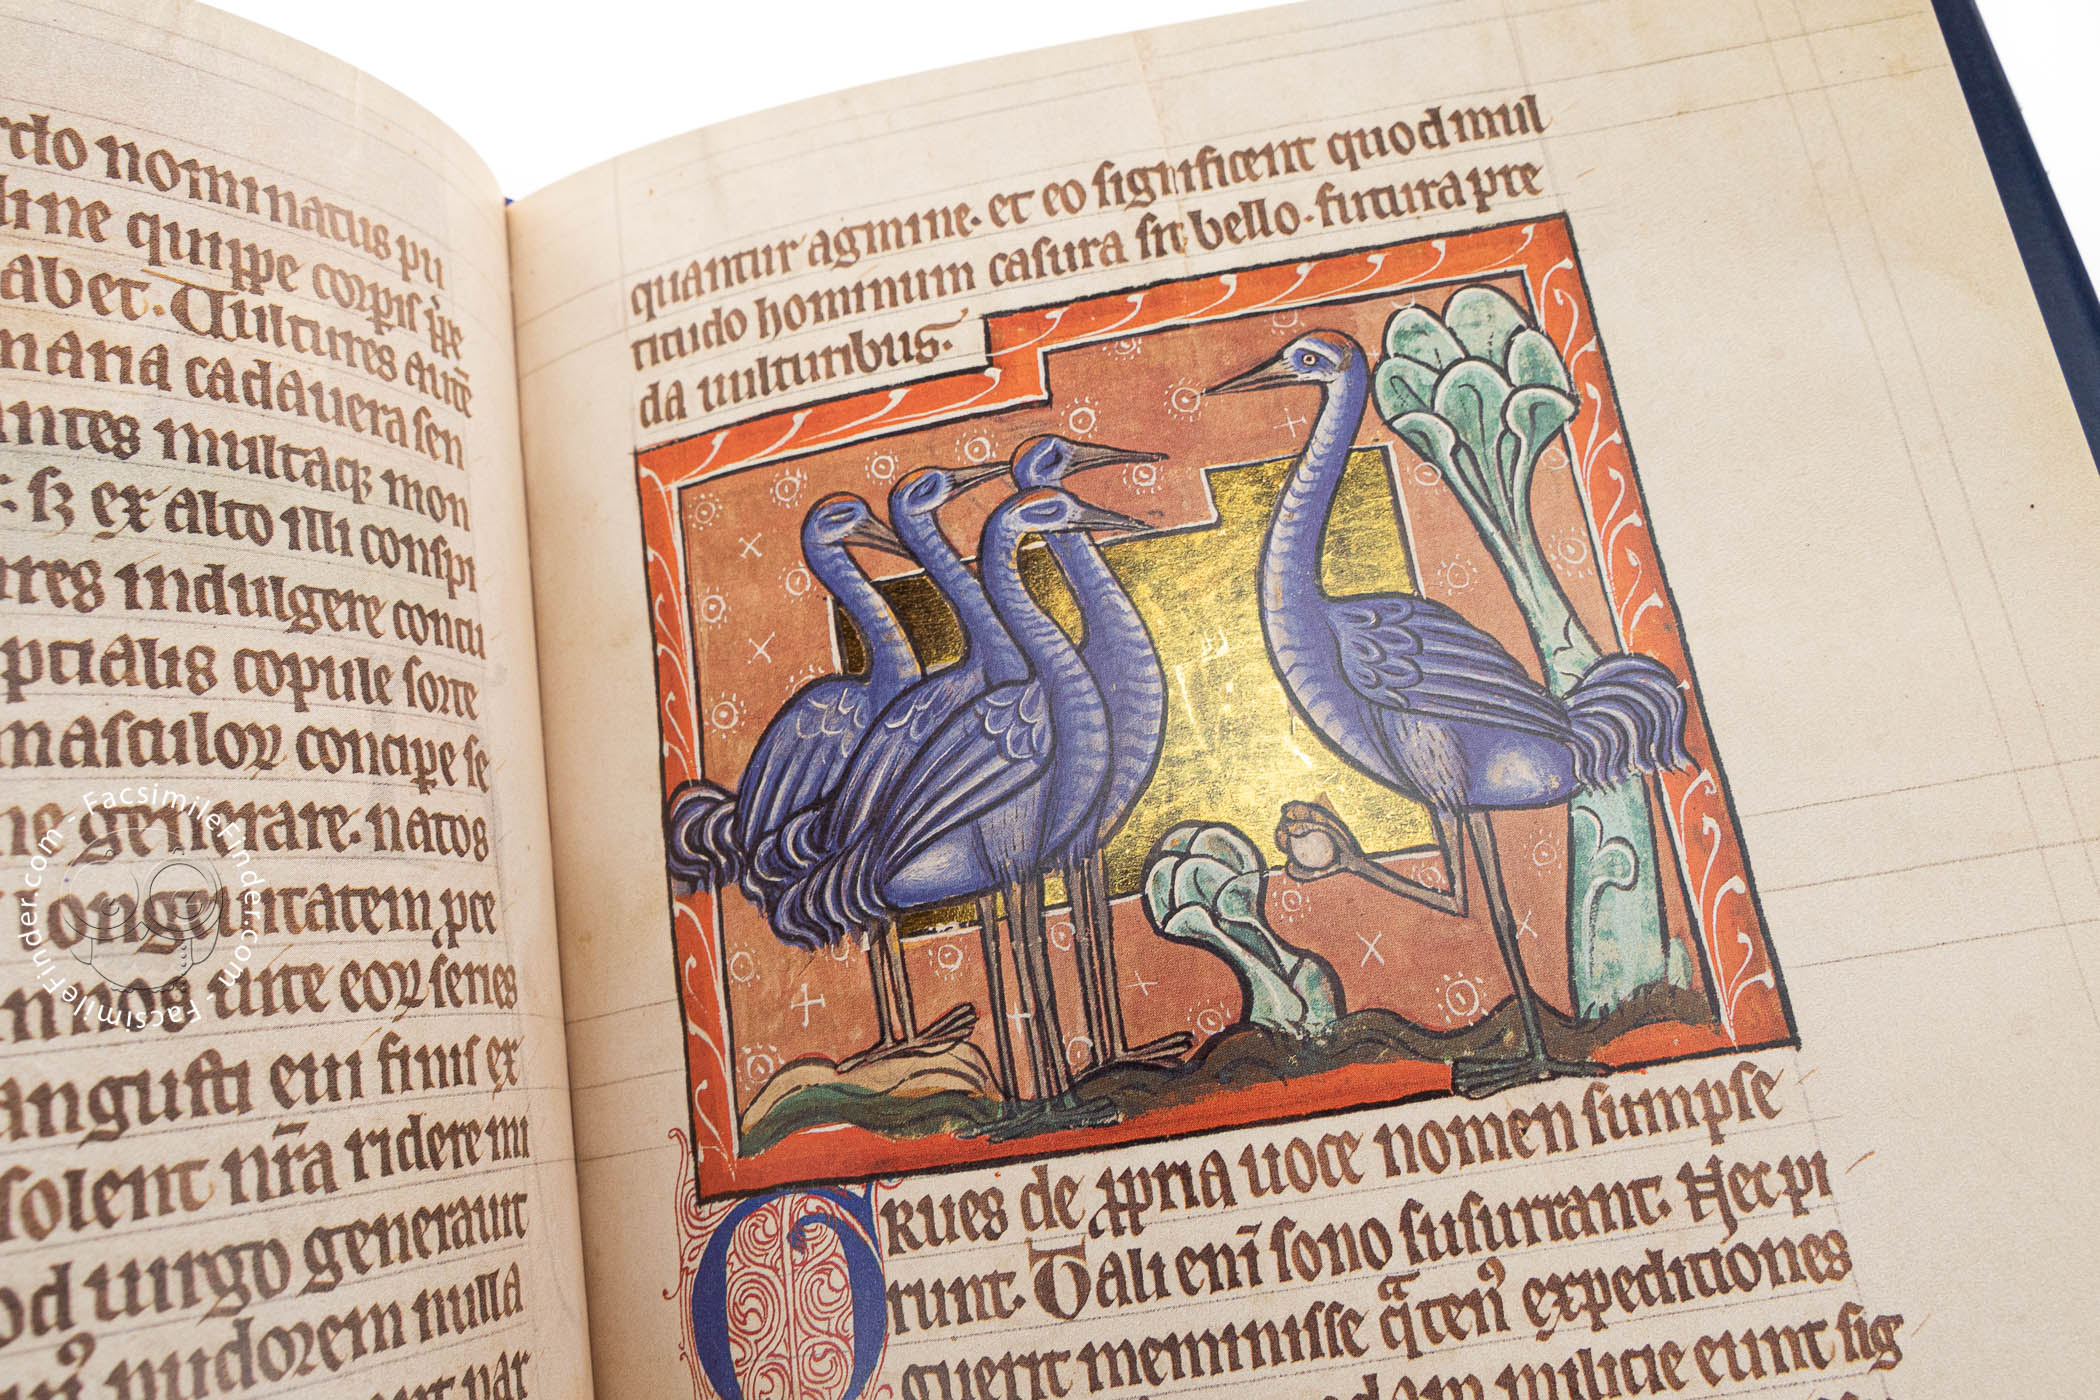 rdo nominatus pu
dine quippe corpis ṗre
abet. Vultures autē
mana cadauera sen
antes multaqꝫ mon
sꝫ ex alto illi conspi
ures indulgere concu
ptialis copule sorte
masculoꝝ concipe se
ne generare. natos
longeuitatem pre
annos uite eoꝝ series
angusti cui finis ex
solent nr̄a ridere mi
od uirgo generauit
pudorem nulla
par
quantur agmine. et eo significent quod mul
titudo hominum casura sit bello. futura pre
da uulturibus.
Grues de ꝓpria uoce nomen sumpse
runt. Tali enī sono susurrant. Hec
guerit meminisse expeditiones
milicie eunt sig
FacsimileFinder.com - FacsimileFinder.com -